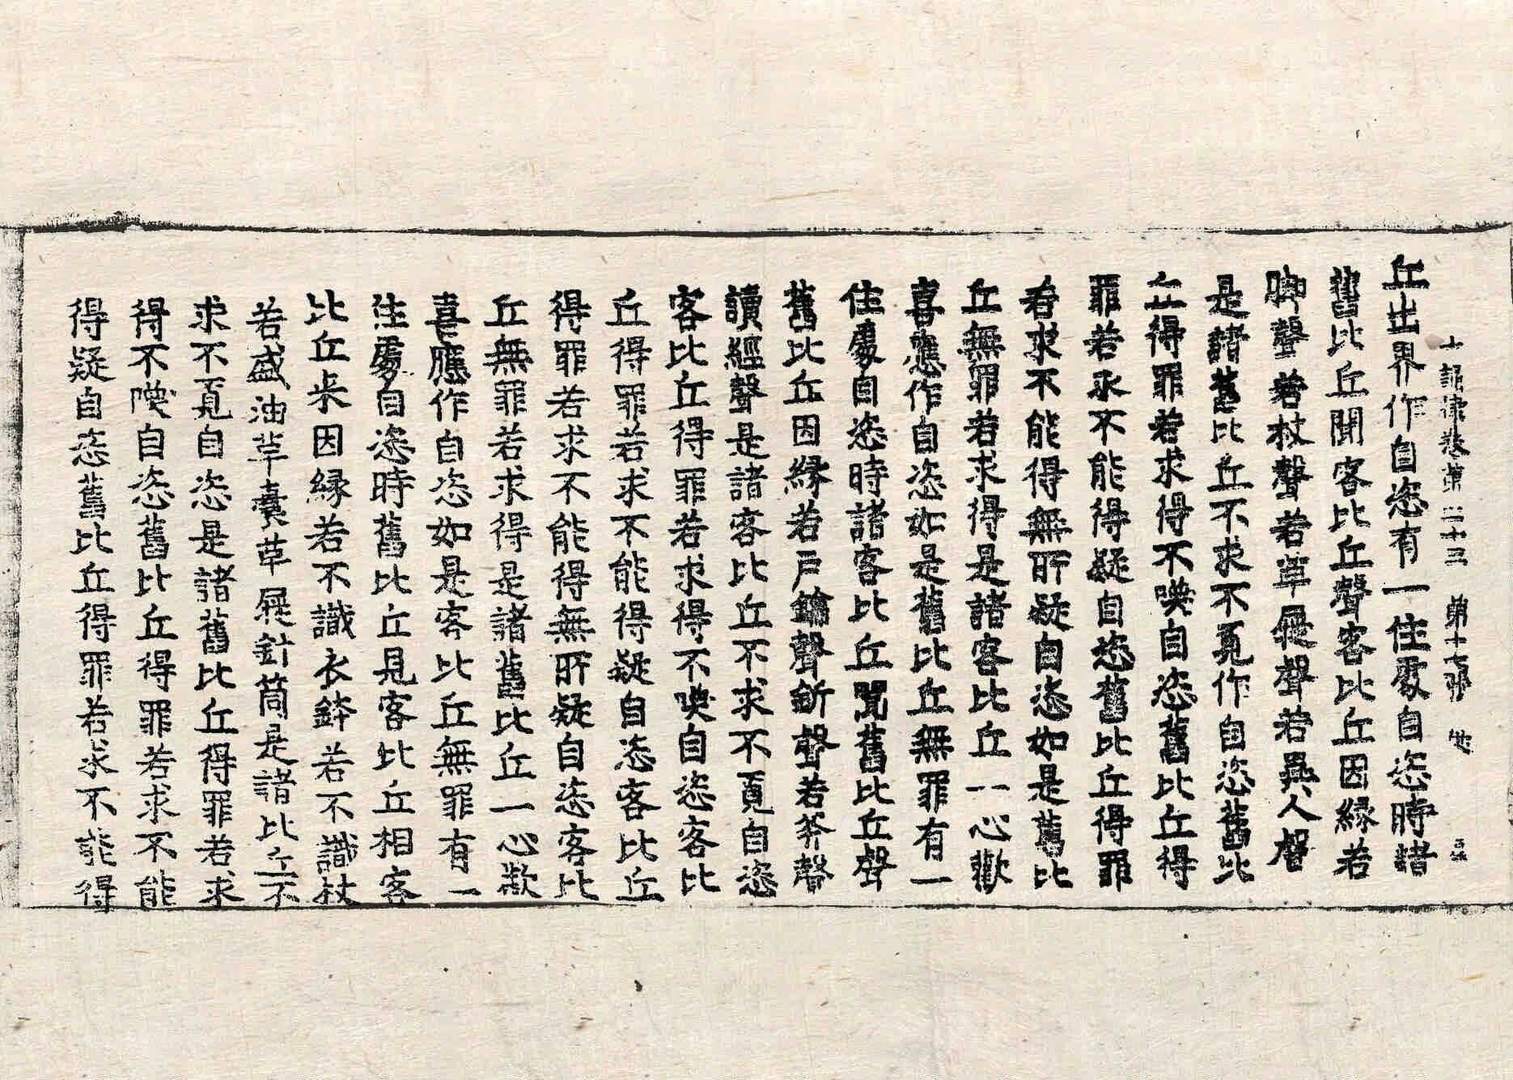 十誦律卷第二十三　第十七張　
丘出界作自恣有一住處自恣時諸
舊比丘聞客比丘聲客比丘因緣若
脚聲若杖聲若革屣聲若異人聲
是諸舊比丘不求不覓作自恣舊比
丘得罪若求得不喚自恣舊比丘得
罪若求不能得疑自恣舊比丘得罪
若求不能得無所疑自恣如是舊比
丘無罪若求得是諸客比丘一心歡
喜應作自恣如是舊比丘無罪有一
住處自恣時諸客比丘聞舊比丘聲
舊比丘因緣若戶鑰聲釿聲若斧聲
讀經聲是諸客比丘不求不覓自恣
客比丘得罪若求得不喚自恣客比
丘得罪若求不能得疑自恣客比丘
得罪若求不能得無所疑自恣客比
丘無罪若求得是諸舊比丘一心歡
喜應作自恣如是客比丘無罪有一
住處自恣時舊比丘見客比丘相客
比丘來因緣若不識衣鉢若不識杖
若盛油革囊革屣針筒是諸比丘不
求不覓自恣是諸舊比丘得罪若求
得不喚自恣舊比丘得罪若求不能
得疑自恣舊比丘得罪若求不能得